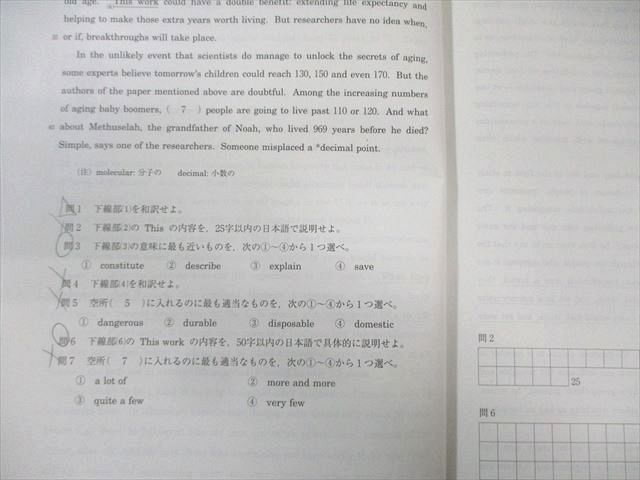 old age. This work could have a double benefit: extending life expectancy and
helping to make those extra years worth living. But researchers have no idea when,
or if, breakthroughs will take place.
In the unlikely event that scientists do manage to unlock the secrets of aging,
some experts believe tomorrow's children could reach 130, 150 and even 170. But the
authors of the paper mentioned above are doubtful. Among the increasing numbers
of aging baby boomers, ( 7 ) people are going to live past 110 or 120. And what
40 about Methuselah, the grandfather of Noah, who lived 969 years before he died?
Simple, says one of the researchers. Someone misplaced a *decimal point.
(注) molecular: 分子の decimal: 小数の
問1 下線部(1)を和訳せよ。
問2 下線部(2)の This の内容を, 25字以内の日本語で説明せよ。
問3 下線部(3)の意味に最も近いものを, 次の①~④から1つ選べ。
① constitute ② describe ③ explain ④ save
問4 下線部(4)を和訳せよ。
問5 空所( 5 )に入れるのに最も適当なものを, 次の①~④から1つ選べ。
① dangerous ② durable ③ disposable ④ domestic
問6 下線部(6)の This work の内容を, 50字以内の日本語で具体的に説明せよ。
問7 空所( 7 )に入れるのに最も適当なものを, 次の①~④から1つ選べ。
① a lot of ② more and more
③ quite a few ④ very few
問2
25
問6